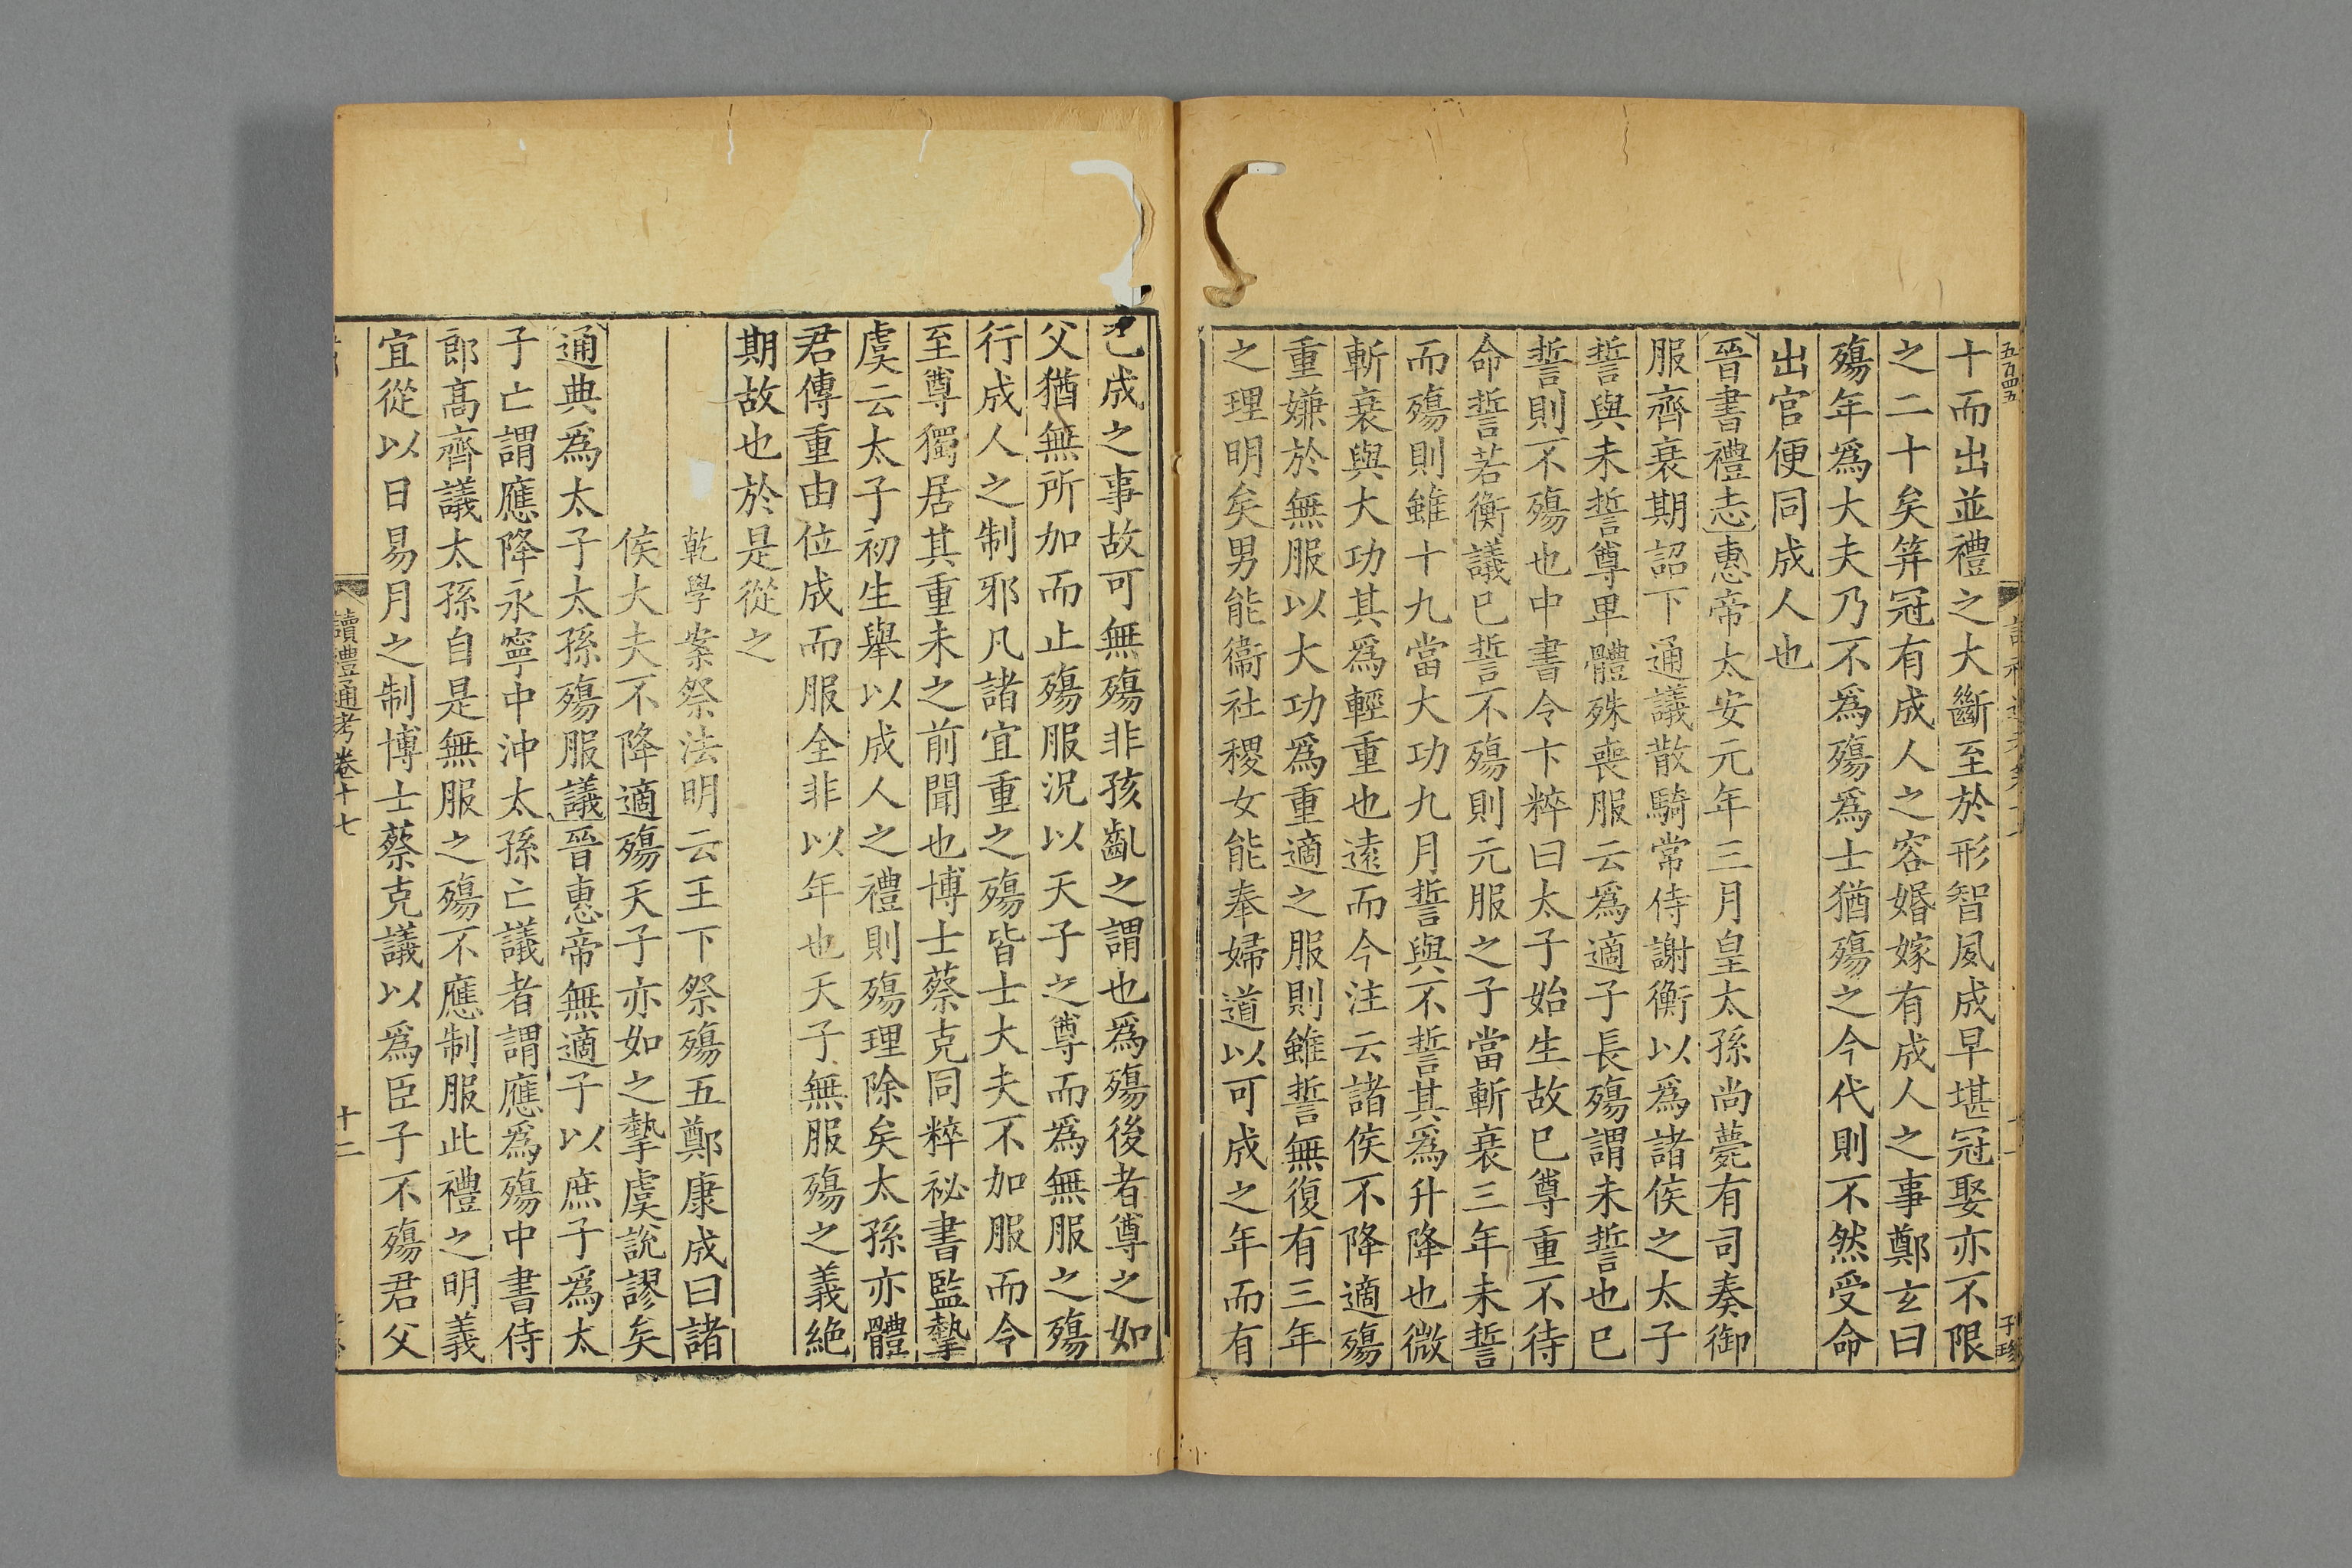 十而出並禮之大斷至於形智夙成早堪冠娶亦不限
之二十矣笄冠有成人之容婚嫁有成人之事鄭玄曰
殤年爲大夫乃不爲殤爲士猶殤之今代則不然受命
出官便同成人也
晉書禮志惠帝太安元年三月皇太孫尚薨有司奏御
服齊衰期詔下通議散騎常侍謝衡以爲諸侯之太子
誓與未誓尊卑體殊喪服云爲適子長殤謂未誓也巳
誓則不殤也中書令卞粹曰太子始生故巳尊重不待
命誓若衡議巳誓不殤則元服之子當斬衰三年未誓
而殤則雖十九當大功九月誓與不誓其爲升降也微
斬衰與大功其爲輕重也遠而今注云諸侯不降適殤
重嫌於無服以大功爲重適之服則雖誓無復有三年
之理明矣男能衞社稷女能奉婦道以可成之年而有
已成之事故可無殤非孩齓之謂也爲殤後者尊之如
父猶無所加而止殤服況以天子之尊而爲無服之殤
行成人之制邪凡諸宜重之殤皆士大夫不加服而今
至尊獨居其重未之前聞也博士蔡克同粹祕書監摯
虞云太子初生舉以成人之禮則殤理除矣太孫亦體
君傳重由位成而服全非以年也天子無服殤之義絶
期故也於是從之
乾學案祭法明云王下祭殤五鄭康成曰諸
侯大夫不降適殤天子亦如之摯虞說謬矣
通典爲太子太孫殤服議晉惠帝無適子以庶子爲太
子亡謂應降永寧中沖太孫亡議者謂應爲殤中書侍
郎高齊議太孫自是無服之殤不應制服此禮之明義
宜從以日易月之制博士蔡克議以爲臣子不殤君父
讀禮通考卷十七
十二